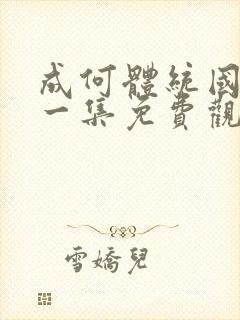 成何體統國
一集免費觀
雪嬌兒